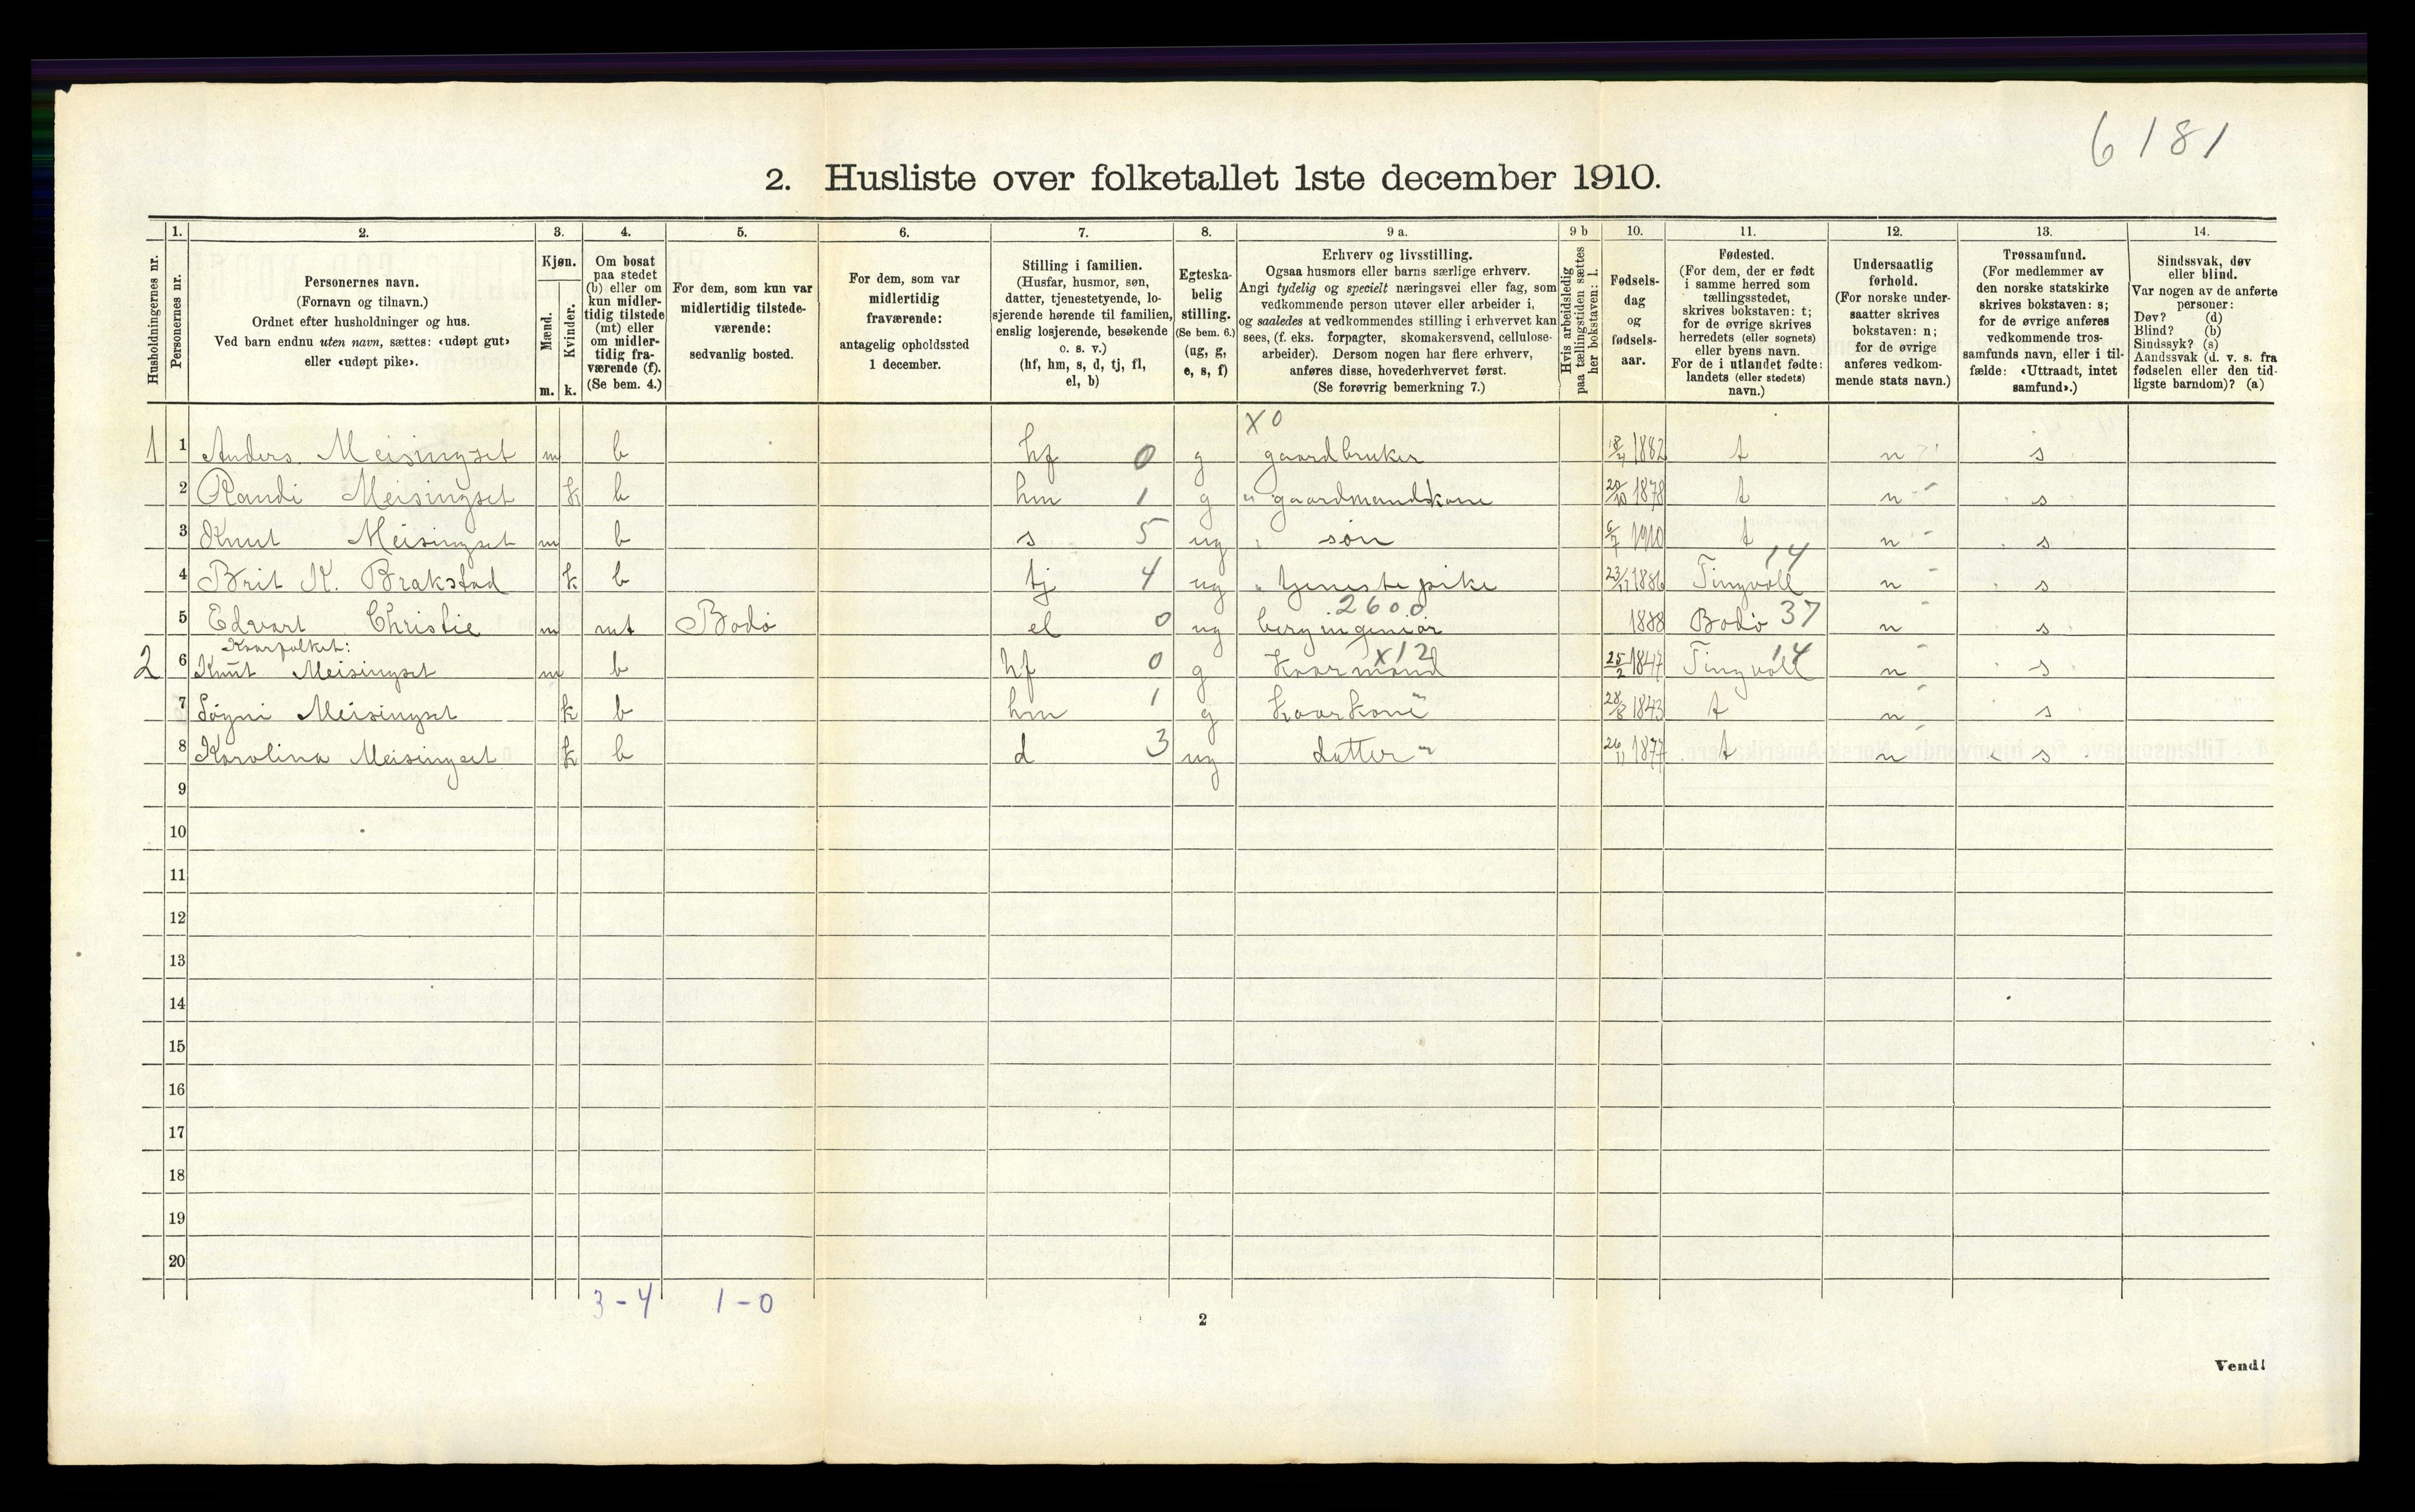 6181
2. Husliste over folketallet 1ste december 1910.
Husholdningernes nr.
1.
Personernes nr.
2.
Personernes navn.
(Fornavn og tilnavn.)
Ordnet efter husholdninger og hus.
Ved barn endnu uten navn, sættes: «udøpt gut»
eller «udøpt pike».
3.
Kjøn.
Mænd.
Kvinder.
m. k.
4.
Om bosat
paa stedet
(b) eller om
kun midler-
tidig tilstede
(mt) eller
om midler-
tidig fra-
værende (f).
(Se bem. 4.)
5.
For dem, som kun var
midlertidig tilstede-
værende:
sedvanlig bosted.
6.
For dem, som var
midlertidig
fraværende:
antagelig opholdssted
1 december.
7.
Stilling i familien.
(Husfar, husmor, søn,
datter, tjenestetyende, lo-
sjerende hørende til familien,
enslig losjerende, besøkende
o. s. v.)
(hf, hm, s, d, tj, fl,
el, b)
8.
Egteska-
belig
stilling.
(Se bem. 6.)
(ug, g,
e, s, f)
9 a.
Erhverv og livsstilling.
Ogsaa husmors eller barns særlige erhverv.
Angi tydelig og specielt næringsvei eller fag, som
vedkommende person utøver eller arbeider i,
og saaledes at vedkommendes stilling i erhvervet kan
sees, (f. eks. forpagter, skomakersvend, cellulose-
arbeider). Dersom nogen har flere erhverv,
anføres disse, hovederhvervet først.
(Se forøvrig bemerkning 7.)
9 b
Hvis arbeidsledig
paa tællingstiden sættes
her bokstaven: l.
10.
Fødsels-
dag
og
fødsels-
aar.
11.
Fødested.
(For dem, der er født
i samme herred som
tællingsstedet,
skrives bokstaven: t;
for de øvrige skrives
herredets (eller sognets)
eller byens navn.
For de i utlandet fødte:
landets (eller stedets)
navn.)
12.
Undersaatlig
forhold.
(For norske under-
saatter skrives
bokstaven: n;
for de øvrige
anføres vedkom-
mende stats navn.)
13.
Trossamfund.
(For medlemmer av
den norske statskirke
skrives bokstaven: s;
for de øvrige anføres
vedkommende tros-
samfunds navn, eller i til-
fælde: «Uttraadt, intet
samfund».)
14.
Sindssvak, døv
eller blind.
Var nogen av de anførte
personer:
Døv? (d)
Blind? (b)
Sindssyk? (s)
Aandssvak (d. v. s. fra
fødselen eller den tid-
ligste barndom)? (a)
X0
1 1 Anders Meisingset m b hf 0 g gaardbruker 18/4 1882 t n s
2 Randi Meisingset k b hm 1 g " gaardmandskone 20/10 1878 t n s
3 Knut Meisingset m b s 5 ug søn 6/7 1910 t n s
14
4 Brit K. Brakstad k b tj 4 ug tjenestepike 23/11 1886 Tingvoll n s
2600
5 Edvart Christie m mt Bodø el 0 ug bergingeniør 1888 Bodø 37 n s
Kaarfolket:
X12 14
2 6 Knut Meisingset m b hf 0 g Kaarmand 25/2 1847 Tingvoll n s
7 Søgni Meisingset k b hm 1 g Kaarkone 28/8 1843 t n s
8 Karolina Meisingset k b d 3 ug datter " 26/11 1877 t n s
9
10
11
12
13
14
15
16
17
18
19
20
3-4 1-0
2
Vend!